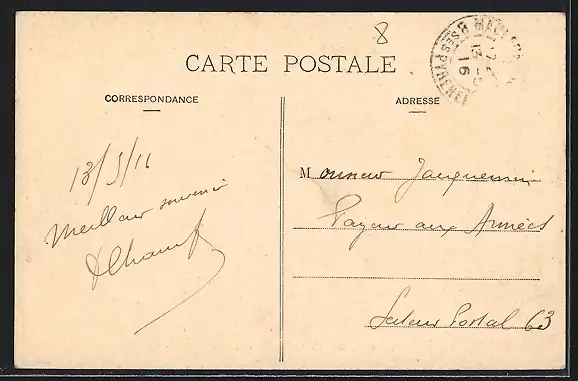 8
CARTE POSTALE
CORRESPONDANCE
ADRESSE
13/5/16
Meilleur souvenir
Monsieur Jacquemin
Payeur aux Armées
Secteur Postal 63